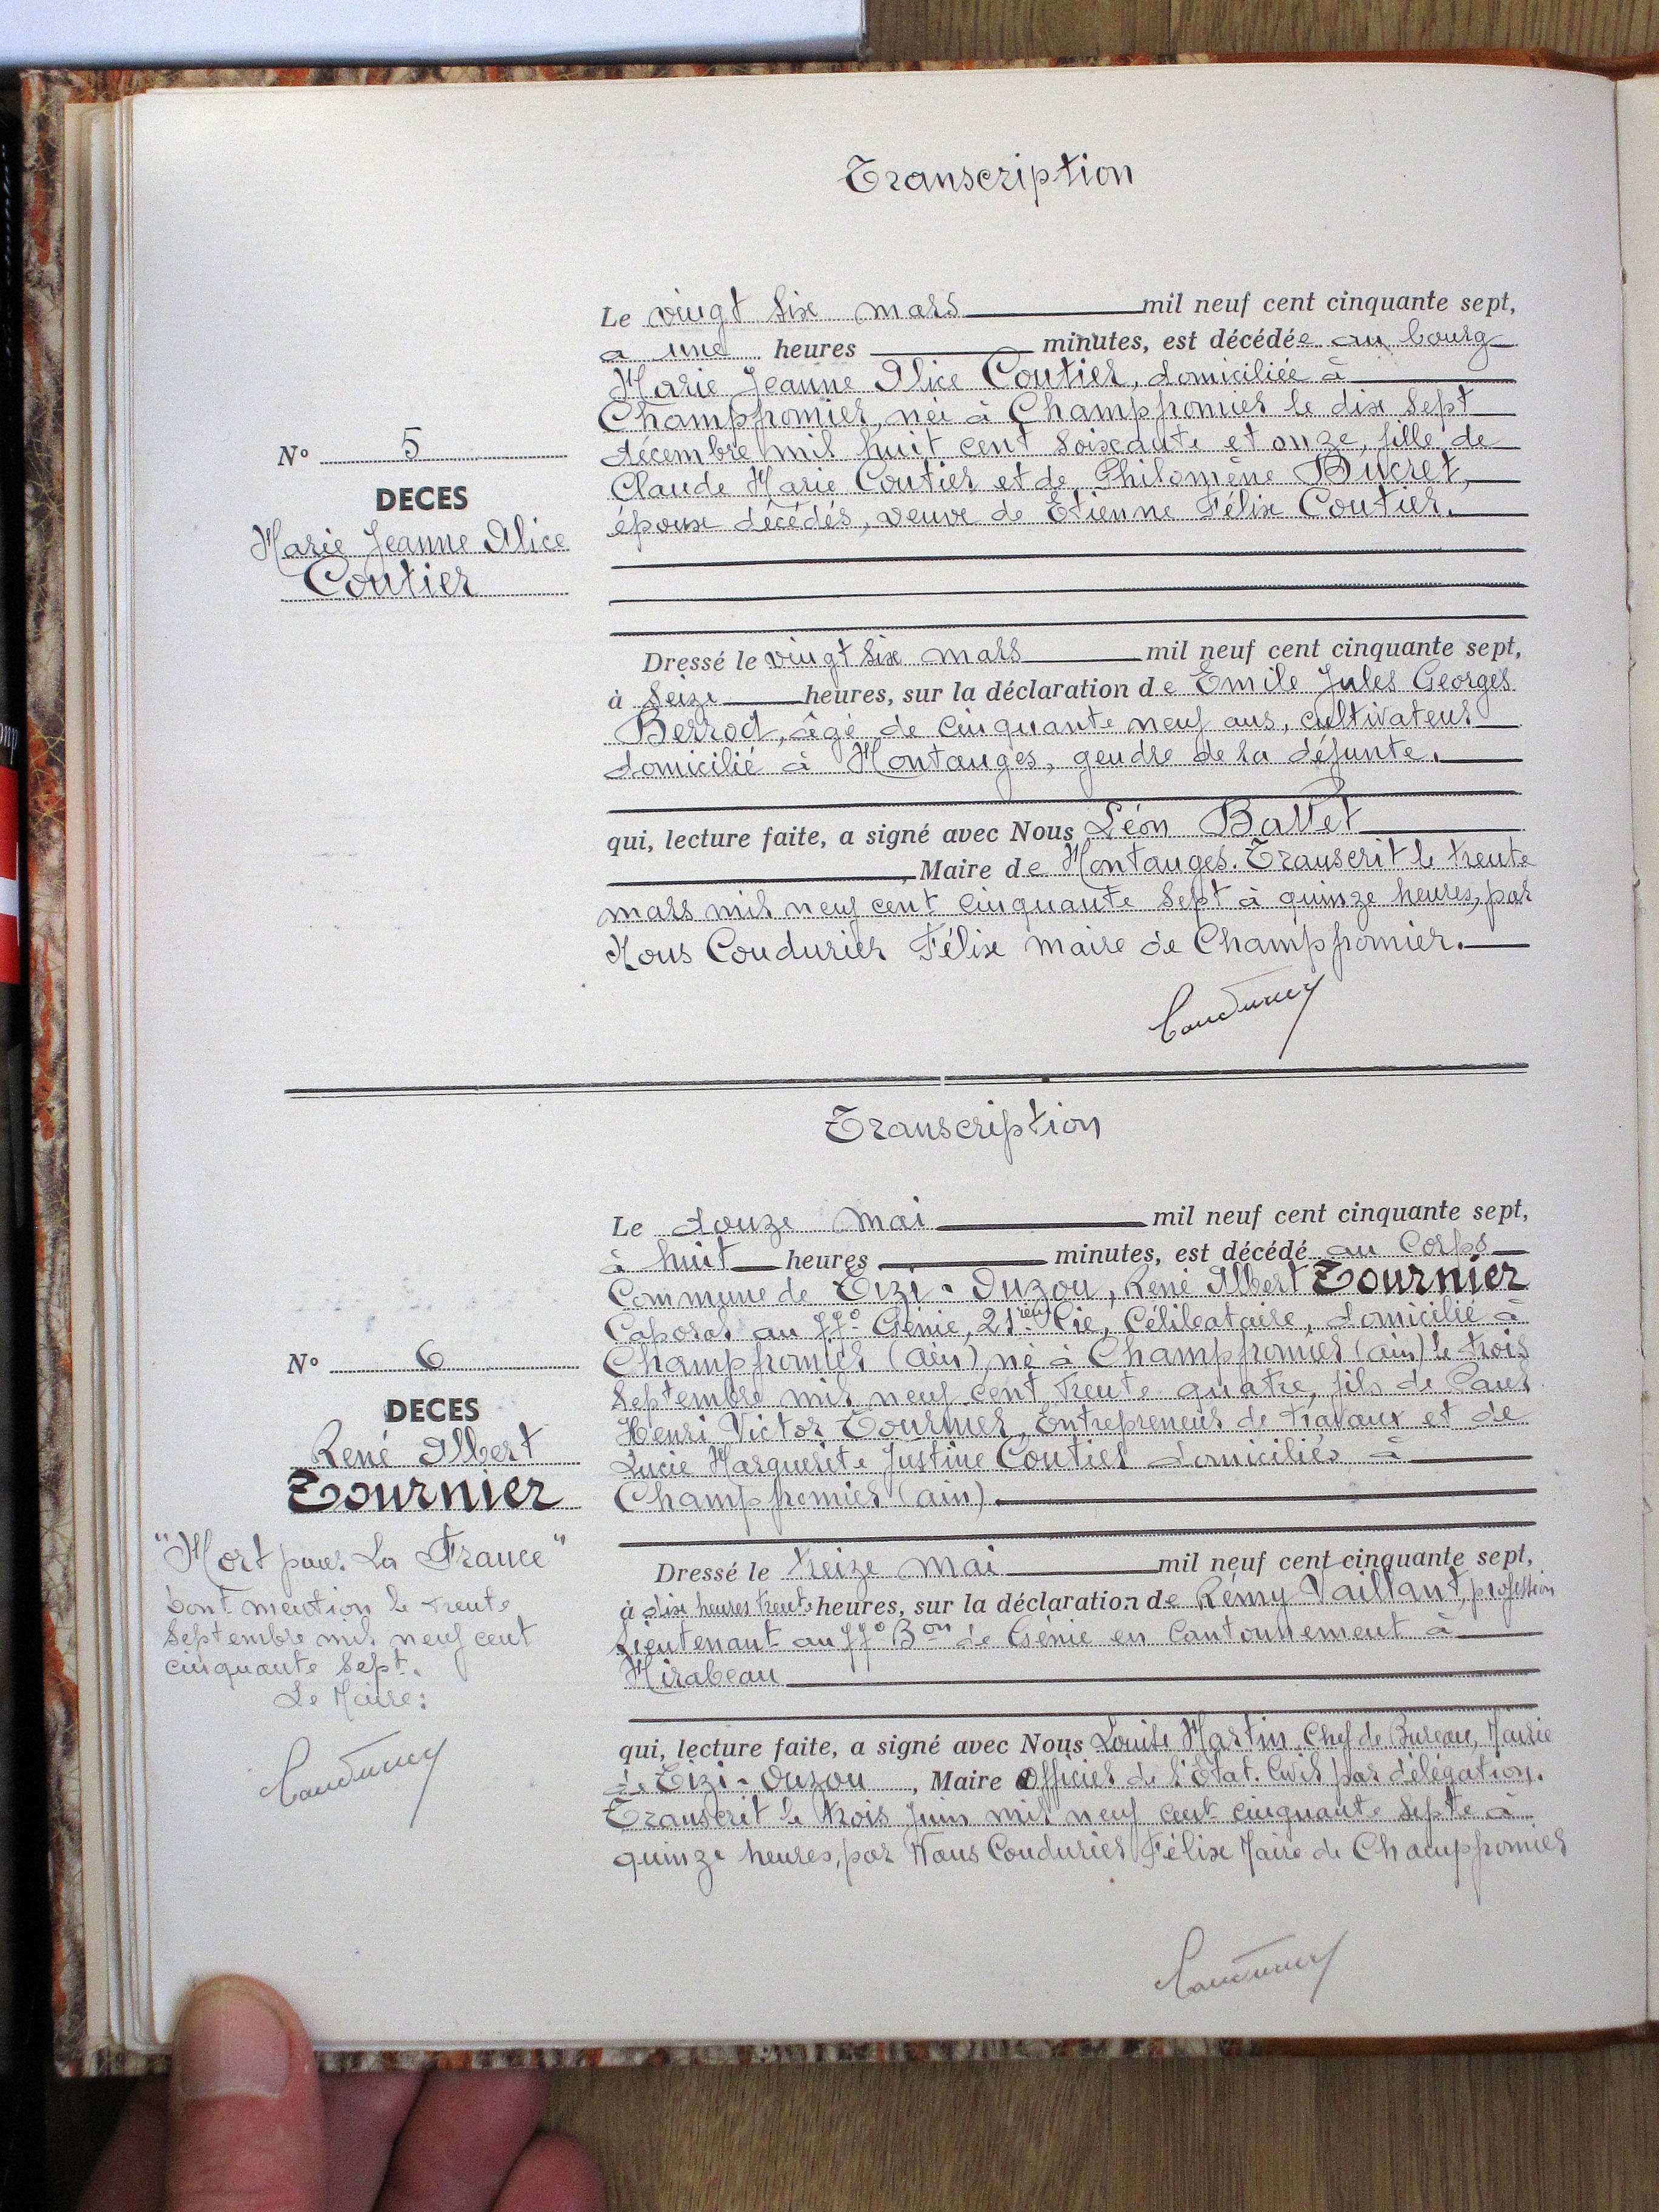 Transcription
Le vingt six mars mil neuf cent cinquante sept,
à une heures minutes, est décédée au bourg
Marie Jeanne Alice Coutier, domiciliée à
Champfromier, née à Champfromier le dix sept
décembre mil huit cent soixante et onze, fille de
Claude Marie Coutier et de Philomène Ducret,
époux décédés, veuve de Etienne Félix Coutier.
N° 5
DECES
Marie Jeanne Alice
Coutier
Dressé le vingt six mars mil neuf cent cinquante sept,
à seize heures, sur la déclaration de Emile Jules Georges
Berrod, âgé de cinquante neuf ans, cultivateur
domicilié à Montanges, gendre de la défunte.
qui, lecture faite, a signé avec Nous Léon Ballet
, Maire de Montanges. Transcrit le trente
mars mil neuf cent cinquante sept à quinze heures, par
Nous Coudurier Félix maire de Champfromier.
Coudurier
Transcription
Le douze mai mil neuf cent cinquante sept,
à huit heures minutes, est décédé au Corps
Commune de Tizi-Ouzou, René Albert Tournier
Caporal au 77° Génie, 21ème Cie, Célibataire, domicilié à
Champfromier (ain) né à Champfromier (ain) le trois
Septembre mil neuf cent trente quatre, fils de Paul
Henri Victor Tournier, Entrepreneur de travaux et de
Lucie Marguerite Justine Coutier domiciliés à
Champfromier (ain).
N° 6
DECES
René Albert
Tournier
"Mort pour La France"
Dont mention le trente
Septembre mil neuf cent
cinquante sept.
Le Maire:
Coudurier
Dressé le treize mai mil neuf cent cinquante sept,
à dix heures trente heures, sur la déclaration de Rémy Vaillant, profession
Lieutenant au 77° Bon de Génie en Cantonnement à
Mirabeau
qui, lecture faite, a signé avec Nous Louise Martin Chef de Bureau, Mairie
de Tizi-Ouzou, Maire Officier de l'Etat. Civil par délégation.
Transcrit le trois juin mil neuf cent cinquante septe à
quinze heures, par Nous Coudurier Félix Maire de Champfromier
Coudurier